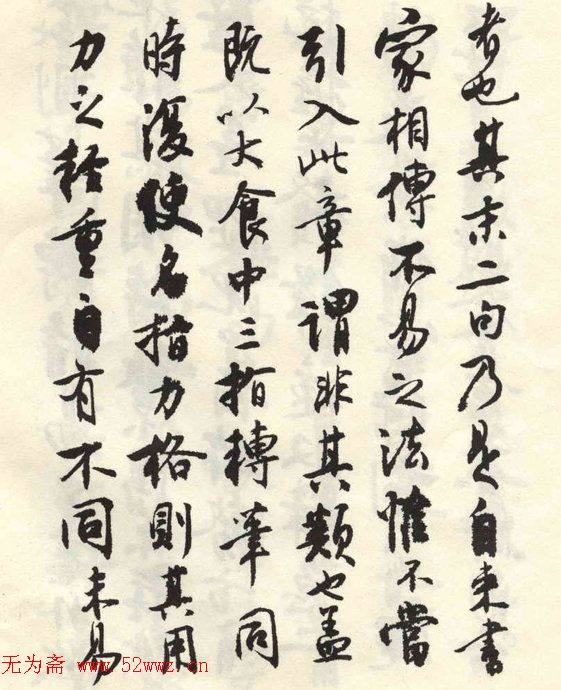 者也其末二句乃是自来書
家相傳不易之法惟不當
引入此章謂非其類也蓋
既以大食中三指摶筆同
時復使名指力格則其用
力之輕重自有不同未易
无为斋 www.52wwz.cn